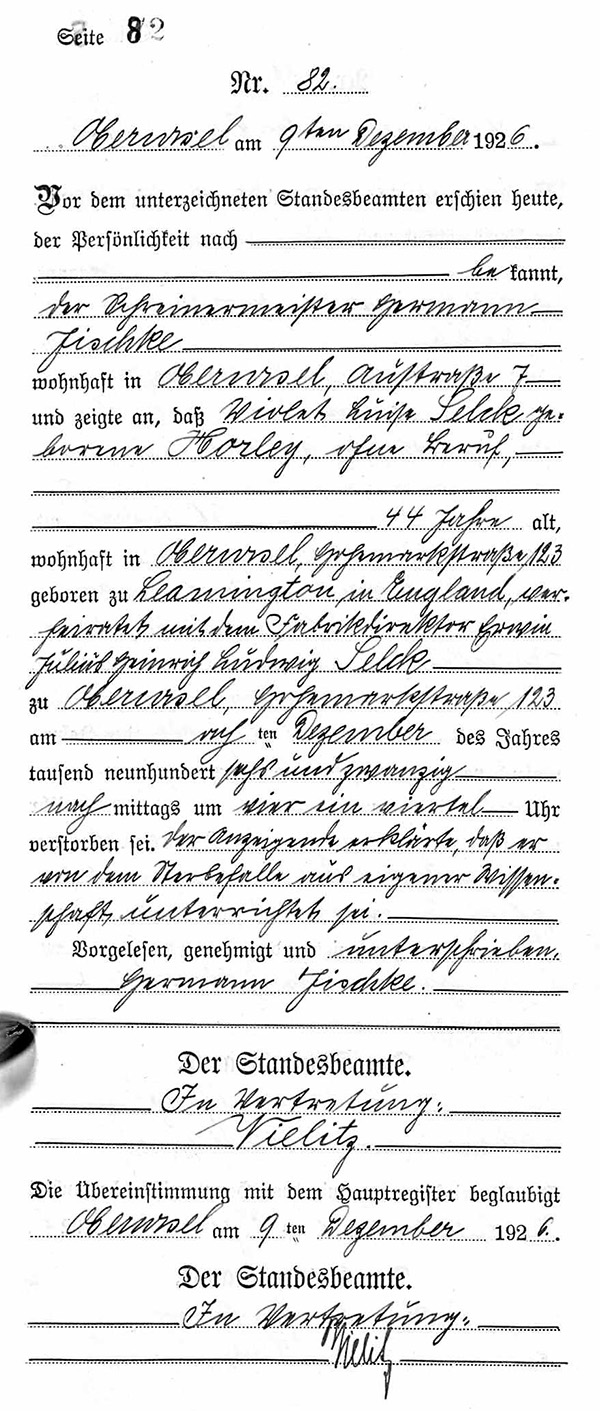 Seite 82
Nr. 82.
Oberursel am 9ten Dezember 1926.
Vor dem unterzeichneten Standesbeamten erschien heute,
der Persönlichkeit nach
bekannt,
der Schreinermeister Hermann
Jischke
wohnhaft in Oberursel, Austraße 7
und zeigte an, daß Violet Luise Selck ge-
borene Horley, ohne Beruf,
44 Jahre alt,
wohnhaft in Oberursel, Hohemarkstraße 123
geboren zu Leamington, in England, ver-
heiratet mit dem Fabrikdirektor Erwin
Julius Heinrich Ludwig Selck
zu Oberursel, Hohemarkstraße 123
am acht ten Dezember des Jahres
tausend neunhundert sechs und zwanzig
nach mittags um vier ein viertel Uhr
verstorben sei. Der Anzeigende erklärte, daß er
von dem Sterbefalle aus eigener Wissen-
schaft unterrichtet sei.
Vorgelesen, genehmigt und unterschrieben.
Hermann Jischke.
Der Standesbeamte.
In Vertretung:
Vielitz.
Die Übereinstimmung mit dem Hauptregister beglaubigt
Oberursel am 9 ten Dezember 1926.
Der Standesbeamte.
In Vertretung:
Vielitz